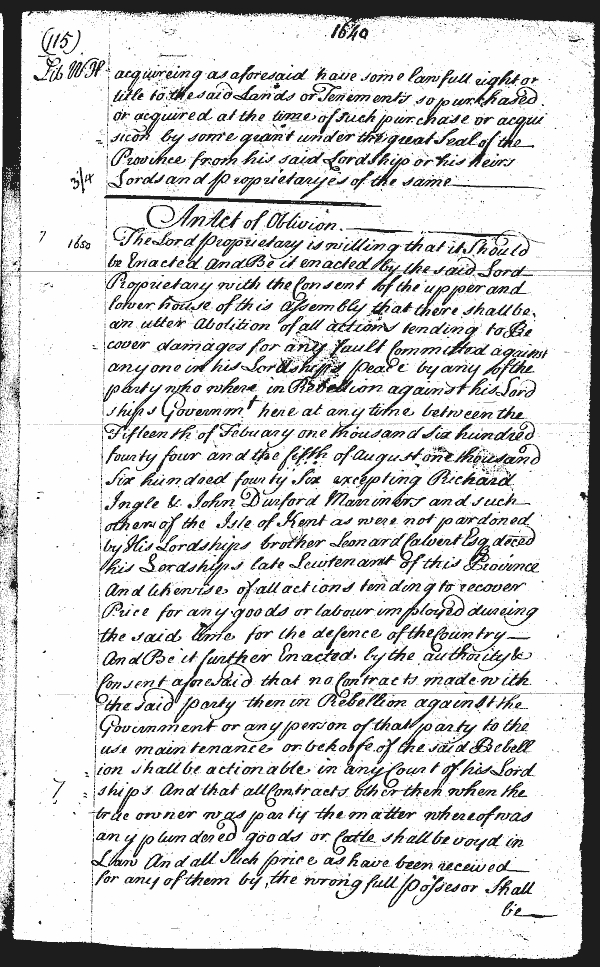 1640
(115)
Lib W H
acquireing as aforesaid have some lawfull right or
title to the said Lands or Tenements so purchased
or acquired at the time of such purchase or acqui
sicon by some grant under the great Seal of the
Province from his said Lordship or his heirs
Lords and Proprietaryes of the same
3/4
An Act of Oblivion.
7 1650
The Lord Proprietary is willing that it Should
be Enacted And Be it enacted by the said Lord
Proprietary with the Consent of the upper and
lower house of this Assembly that there shall be
an utter Abolition of all actions tending to Re
cover damages for any fault Committed against
any one in his Lordships Peace by any of the
party who where in Rebellion against his Lord
ships Governmt here at any time between the
Fifteenth of Febuary one thousand Six hundred
fourty four and the fifth of August one thousand
Six hundred fourty Six excepting Richard
Ingle & John Durford Marriners and such
others of the Isle of Kent as were not pardoned
by His Lordships brother Leonard Calvert Esq deced
his Lordships late Lewtenant of this Province
And likewise of all actions tending to recover
Price for any goods or labour imployed dureing
the said time for the defence of the Country
And Be it further Enacted by the authority &
Consent aforesaid that no Contracts made with
the said party then in Rebellion against the
Government or any person of that party to the
use maintenance or behoofe of the said Rebell
ion shall be actionable in any Court of his Lord
ships And that all Contracts other then when the
7
true owner was party the matter whereof was
any plundered goods or Catle shall be voyd in
Law And all Such price as have been received
for any of them by the wrong full Possesor Shall
be